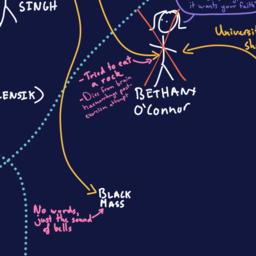 SINGH
it wants your faith"
Universi
sh
- Tried to eat
a rock
- Dies from brain
haemorrhage post-
exorcism attempt
ENSIK)
BETHANY
O'Connor
BLACK
MASS
No words,
just the sound
of bells